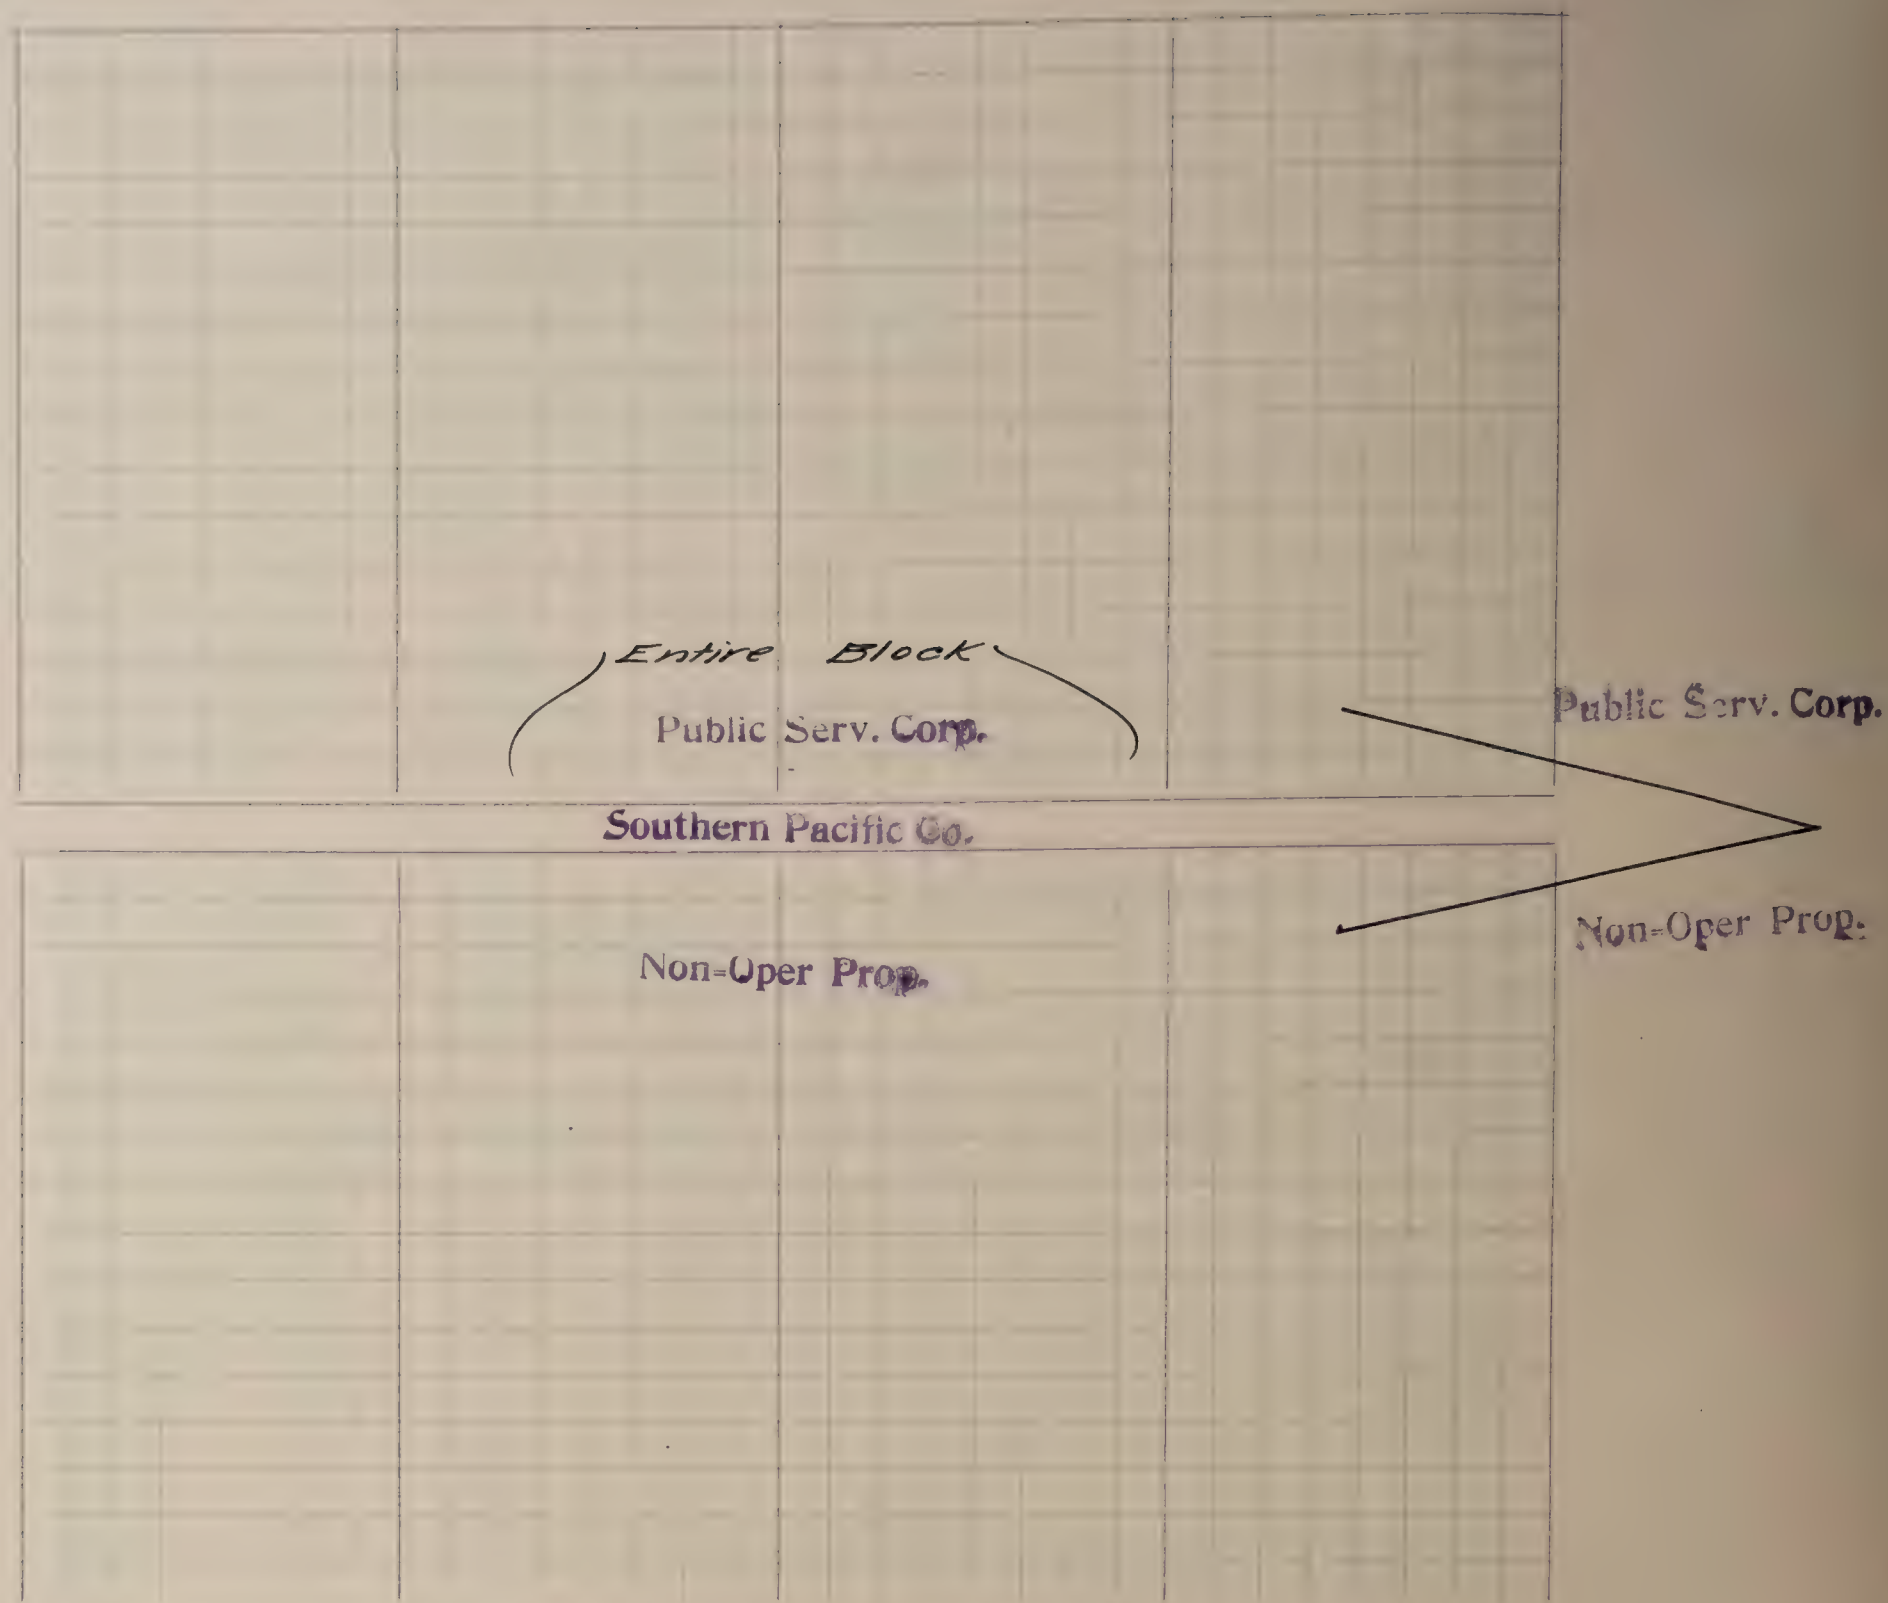 Entire Block
Public Serv. Corp.
Public Serv. Corp.
Southern Pacific Co.
Non=Oper Prop.
Non=Oper Prop.